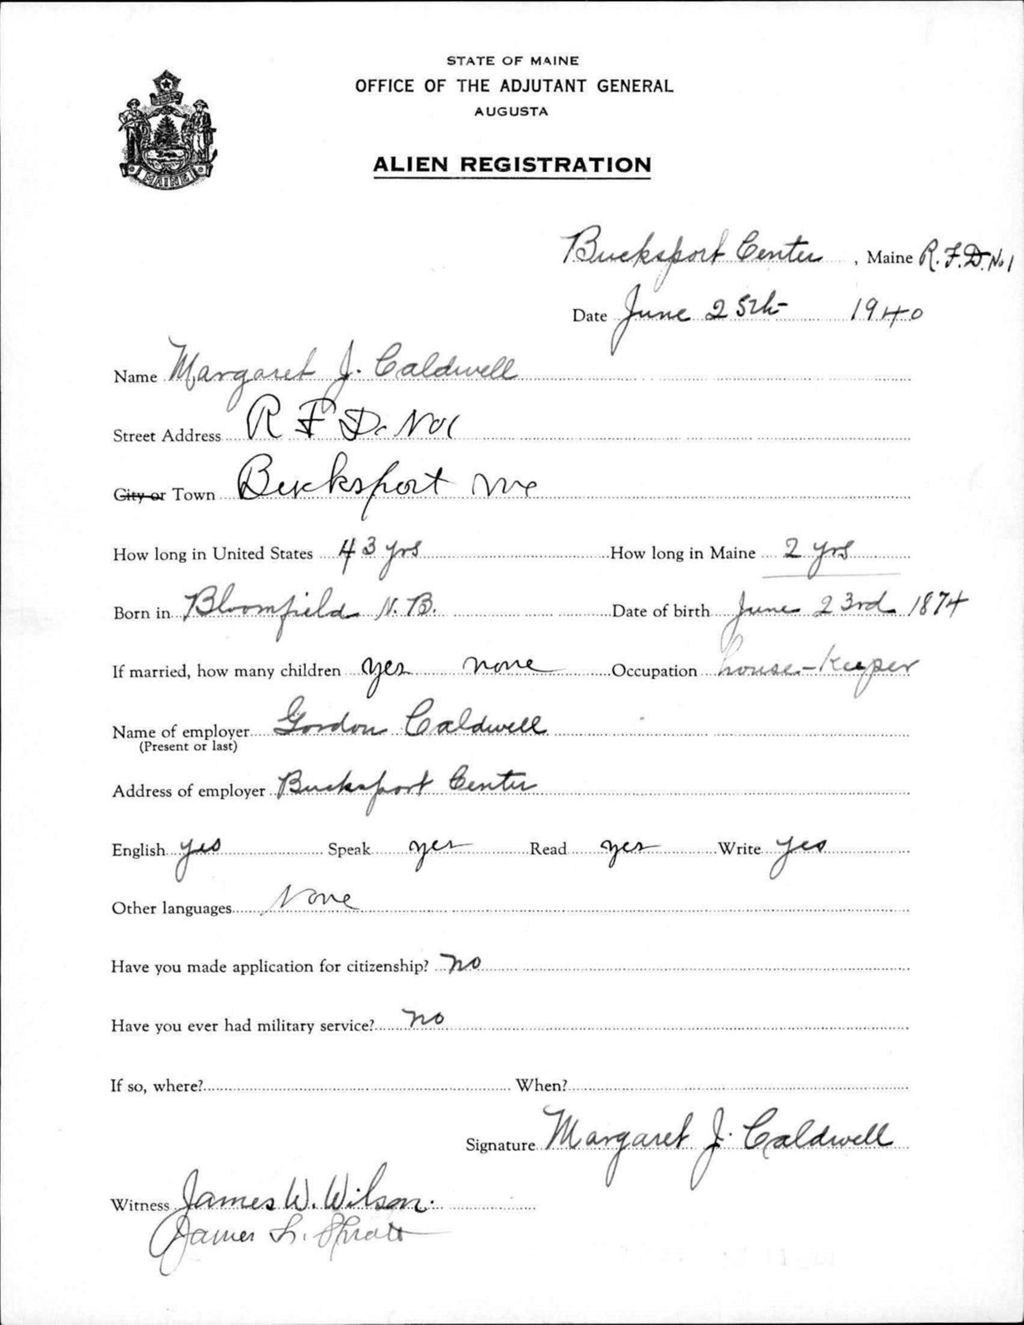 STATE OF MAINE
OFFICE OF THE ADJUTANT GENERAL
AUGUSTA
ALIEN REGISTRATION
MAINE
Bucksport Center, Maine R.F.D. No 1
Date June 25th 1940
Name Margaret J. Caldwell
Street Address R F D. No 1
City or Town Bucksport Me
How long in United States 43 yrs How long in Maine 2 yrs
Born in Bloomfield N.B. Date of birth June 23rd 1874
If married, how many children yes none Occupation house-keeper
Name of employer Gordon Caldwell
(Present or last)
Address of employer Bucksport Center
English yes Speak yes Read yes Write yes
Other languages None
Have you made application for citizenship? no
Have you ever had military service? no
If so, where? When?
Signature Margaret J. Caldwell
Witness James W. Wilson.
James L. Spratt